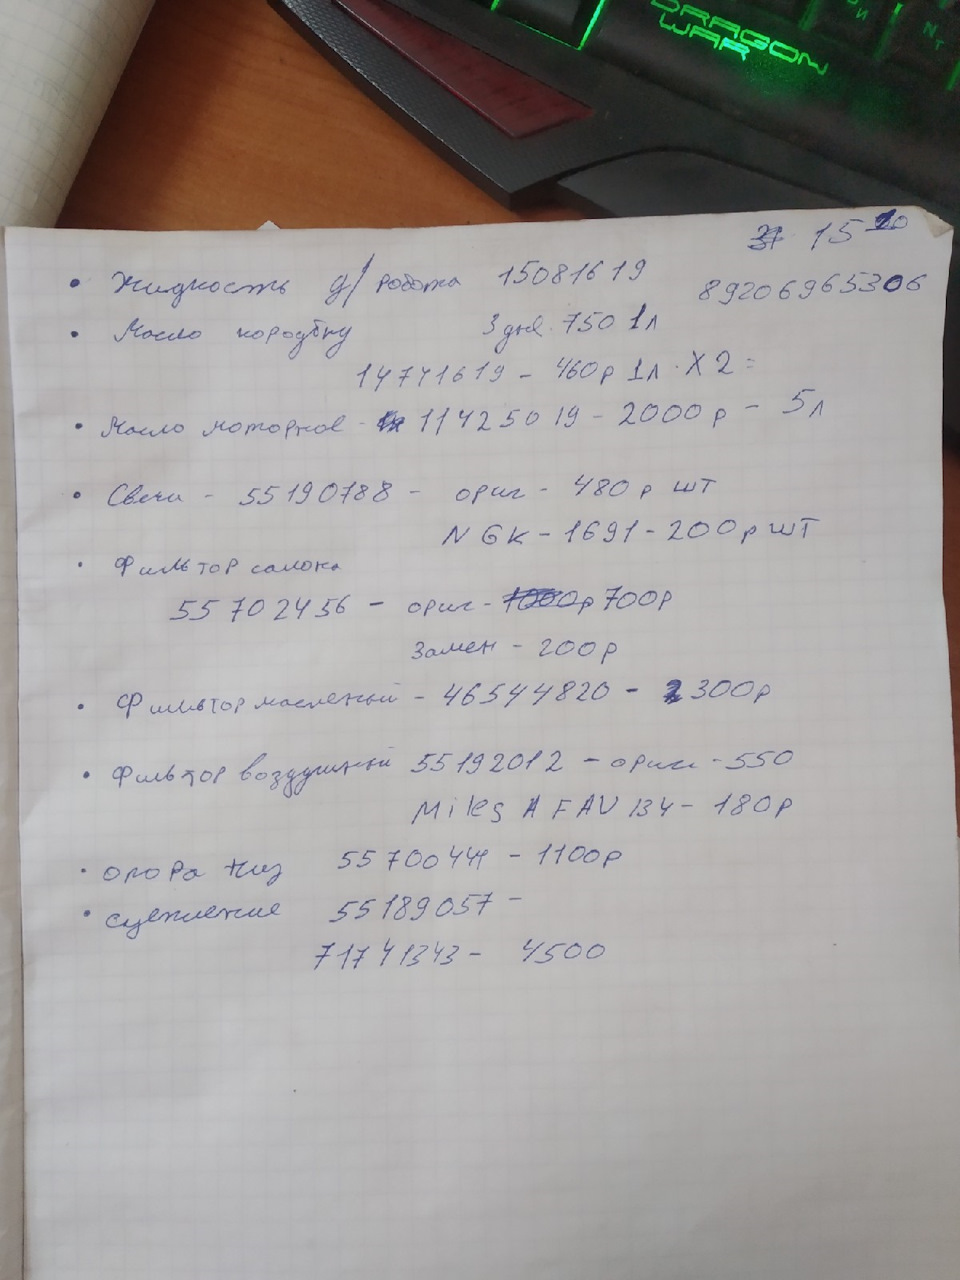 DRAGON
WAR
15 20
• Жидкость д/робота 15081619
89206965306
• Масло коробку 3 дня. 750 1л
14741619 - 460р 1л. X 2 =
• Масло моторное - 11425019 - 2000р - 5л
• Свечи - 55190788 - ориг - 480р шт
NGK - 1691 - 200р шт
• Фильтор салона
55702456 - ориг - 1000р 700р
Замен - 200р
• Фильтор масленый - 46544820 - 300р
• Фильтор воздушный 55192012 - ориг - 550
Miles AFAV 134 - 180р
• опора низ 55700441 - 1100р
• сцепление 55189057 -
71741343 - 4500